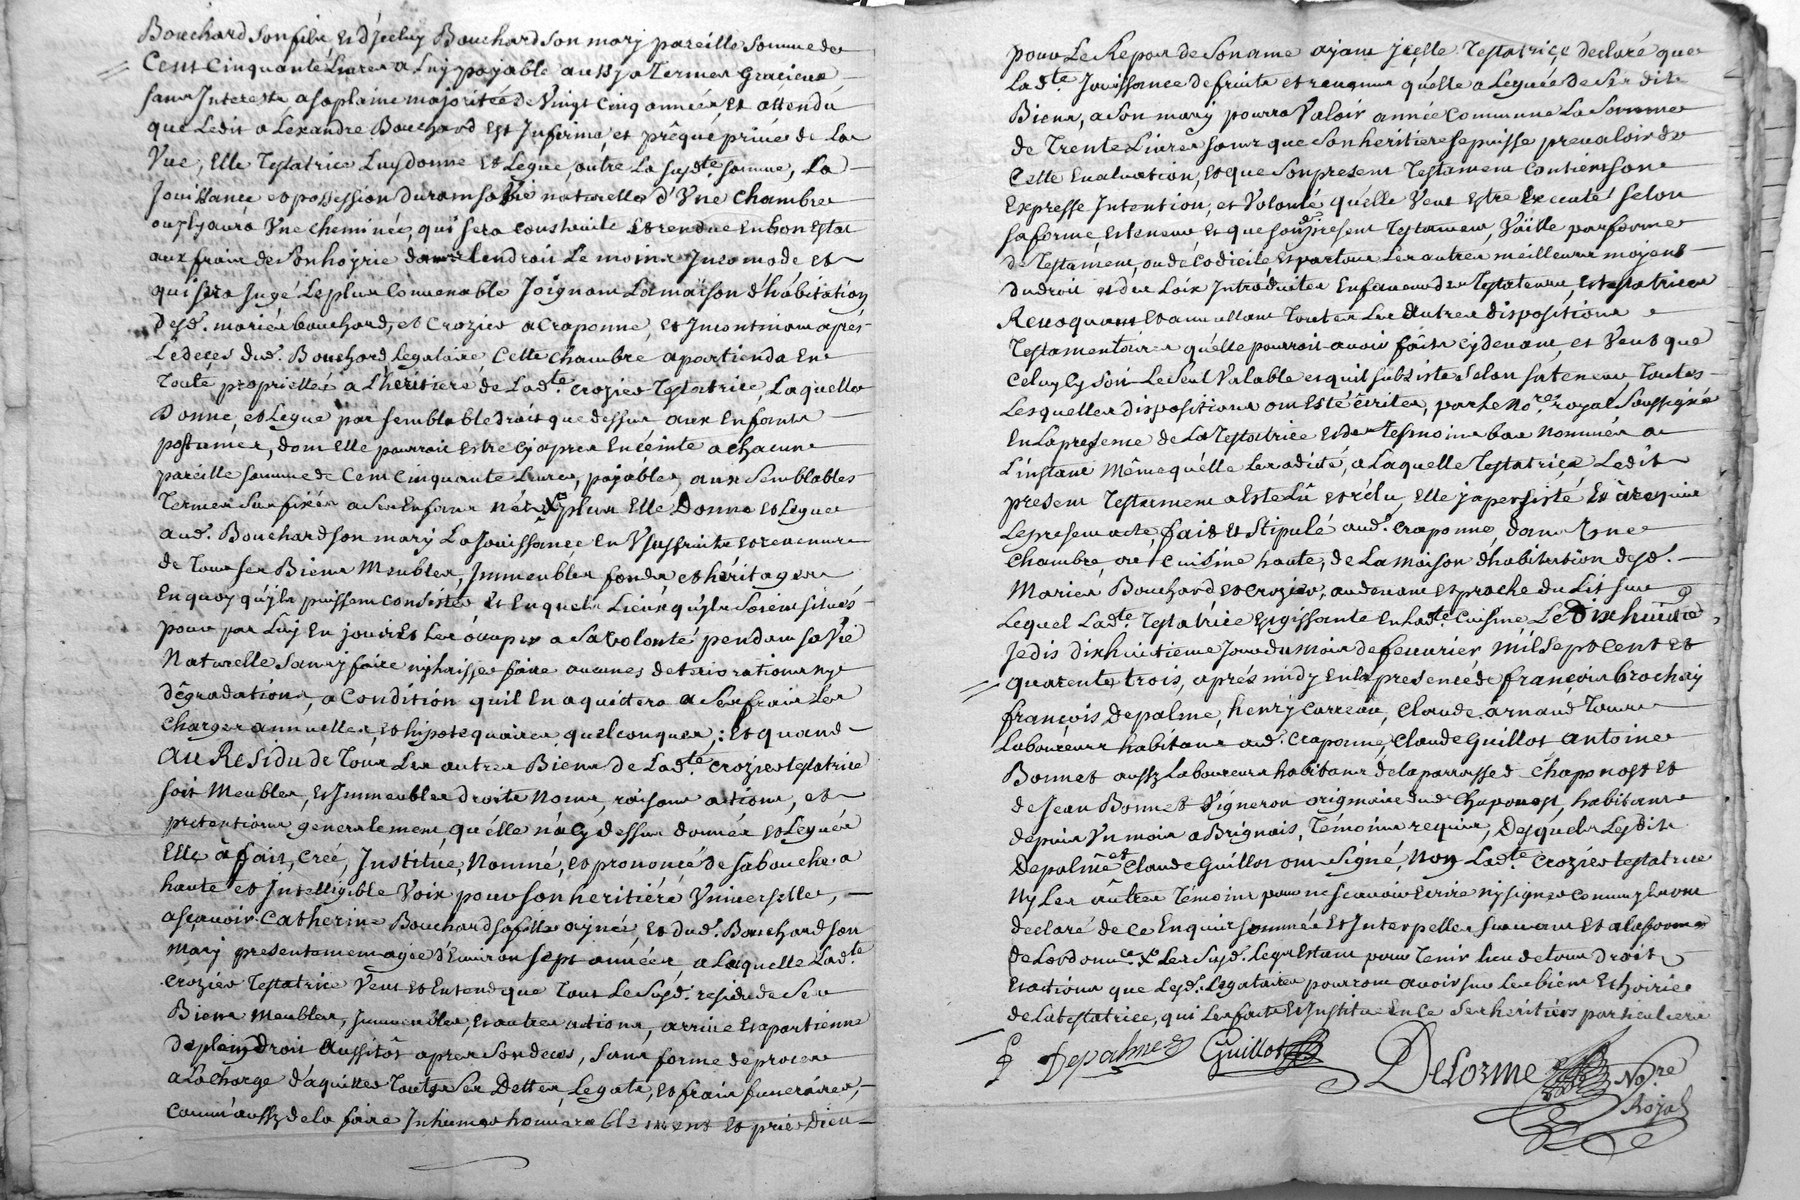 Bouchard son fils, et d'jceluy Bouchard son mary pareille somme de
Cent Cinquante Livres a luy payable aussy a Termes Gracieux
sans Interests a sa plaine majoritée de Vingt Cinq années Et attendu
que Ledit alexandre Bouchard Est Infirme, et présqué privée de La
Vue, Elle Testatrice Luy donne Et Legue, outre La susd.te somme, La
Jouissance et possession durant sa Vie naturelle d'Vne Chambre
ou jl y aura Vne cheminée, qui sera construite Et rendue en bon Estat
aux frais de son hoyrie dans Lendroit Le moins Incomode et
qui sera Jugé Le plus Convenable Joignant La maison d'hábitation
Desd. mariés bouchard, et Crozier a Craponne, Et Incontinant aprés
Le décés dud. Bouchard legataire Cette Chambre apartiendra En
Toute proprietée a L'héritiere de Lad.te crozier Testatrice, Laquelle
Donne, et Legue par semblable droit que dessus aux Enfants
postumes, dont Elle pourroit Estre cy apres Enceinte a chacun
pareille somme de Cent Cinquante Livres, payables, aux Semblables
Termes sus fixés a ses Enfans nés, plus Elle Donne et Legue
aud. Bouchard son mary La Jouissance En Vsuffruits et revenus
de Tous ses Biens Meubles, Immeubles fonds et héritages
En quoy qu'jls puissent consister et En quels Lieux qu'jls soient situés
pour par Luy En jouir et Les occuper a sa volonté pendant sa Vie
Naturelle sans y faire ny laisser faire aucunes deteriorations ny
dégradations, a condition quil En aquittera a Ses frais Les
Charges annuelles, et hipotequaires quelconques; Et quand
Au Residu de Tous Les autres Biens de Lad.te crozier testatrice
soit Meubles, et Immeubles droits Noms, raisons actions, et
pretentions generalement qu'élle n'a Cy dessus donnés et Legués
Elle à fait, Créé, Institué, Nommé, et prononcé de sa bouche a
haute et Intelligible Voix pour son heritiere Vniverselle,
asçavoir Catherine Bouchard sa fille aynée, et dud. Bouchard son
mary presentement agée d'Environ sept années, a Laquelle Lad.te
crozier Testatrice Veut et Entend que Tout Le susd. residu de Ses
Biens Meubles, Immeubles, et autres actions, arrive Et apartienne
De plein Droit Aussitôt apres son deces, sans forme de proces
a La charge d'aquitter Toutes Ses Dettes, Legats, et frais funeraires,
comm'aussy de la faire Inhumer honnorablement et prier Dieu
pour Le Repos de son ame ayant Jcelle Testatrice declaré que
Lad.te Jouissance de fruits et revenus qu'élle a Leguée de Ses dits
Biens, a Son mary pourra Valoir année Commune La Somme
de Trente Livres sans que son heritiere se puisse prevaloir de
Cette Evaluation, et que son present Testament Contient son
Expresse Intention, et Volonté qu'élle Veut estre Executé selon
sa forme, et teneur et que sond. present Testament, Vaille par forme
de Testament, ou de Codicile et par tous Les autres meilleurs moyens
du droit et des Loix Introduites En faveur des Testateurs, et testatrices
Revoquant et annullant toutes Les autres dispositions
Testamentaires qu'elle pourroit avoir faits cy devant, et Veut que
Celuy Cy soit Le Seul Valable et quil subsiste selon sa teneur, Toutes
Lesquelles dispositions ont Esté écrites, par Le No.re royal Soussigné
En La presence de La Testatrice et des Tesmoins bas Nommés a
L'instant Même qu'élle Les a dicté, a Laquelle Testatrice Ledit
present Testament a Esté Lû et rélu, Elle y a persisté Et a requis
Le present acte, fait et Stipulé aud. craponne, dans Vne
Chambre, ou Cuisine haute, de La Maison d'habitation desd.
Mariés Bouchard et crozier, au devant et proche du Lit sur
Lequel Lad.te Testatrice est gissante En Lad.te Cuisine Le Dix huict
Je dis dix huitieme Jour du mois de fevrier Mil Sept Cent et
quarente trois, aprés midy En La presence de françois brochay
françois Depalme, henry Carreau, Claude arnaud Tous
Laboureurs habitans aud. Craponne, Claude Guillot antoine
Bonnet aussy Laboureurs habitans de la parroisse d Chaponost et
de Jean Bonnet Vigneron originaire dud. Chaponost, habitant
depuis Vn mois a Brignais, Témoins requis, Desquels Lesdits
Depalme et Claude Guillot ont Signé, Non Lad.te Crozier testatrice
Ny Les autres Témoins pour ne Sçavoir Ecrire ny signer comm'jls ont
declaré de ce Enquis sommés Et Interpellés suivant Et a la forme
de Lordon.ce Les susd. Legs Estant pour Tenir Lieu de tous droits
Et actions que Lesd. Legataires pourront avoir sur Les biens Et hoirie
de La testatrice, qui Les fait Et Institue En Ce Ses heritiers particuliers
f Depalme Guillot DeLorme No.re
Royal